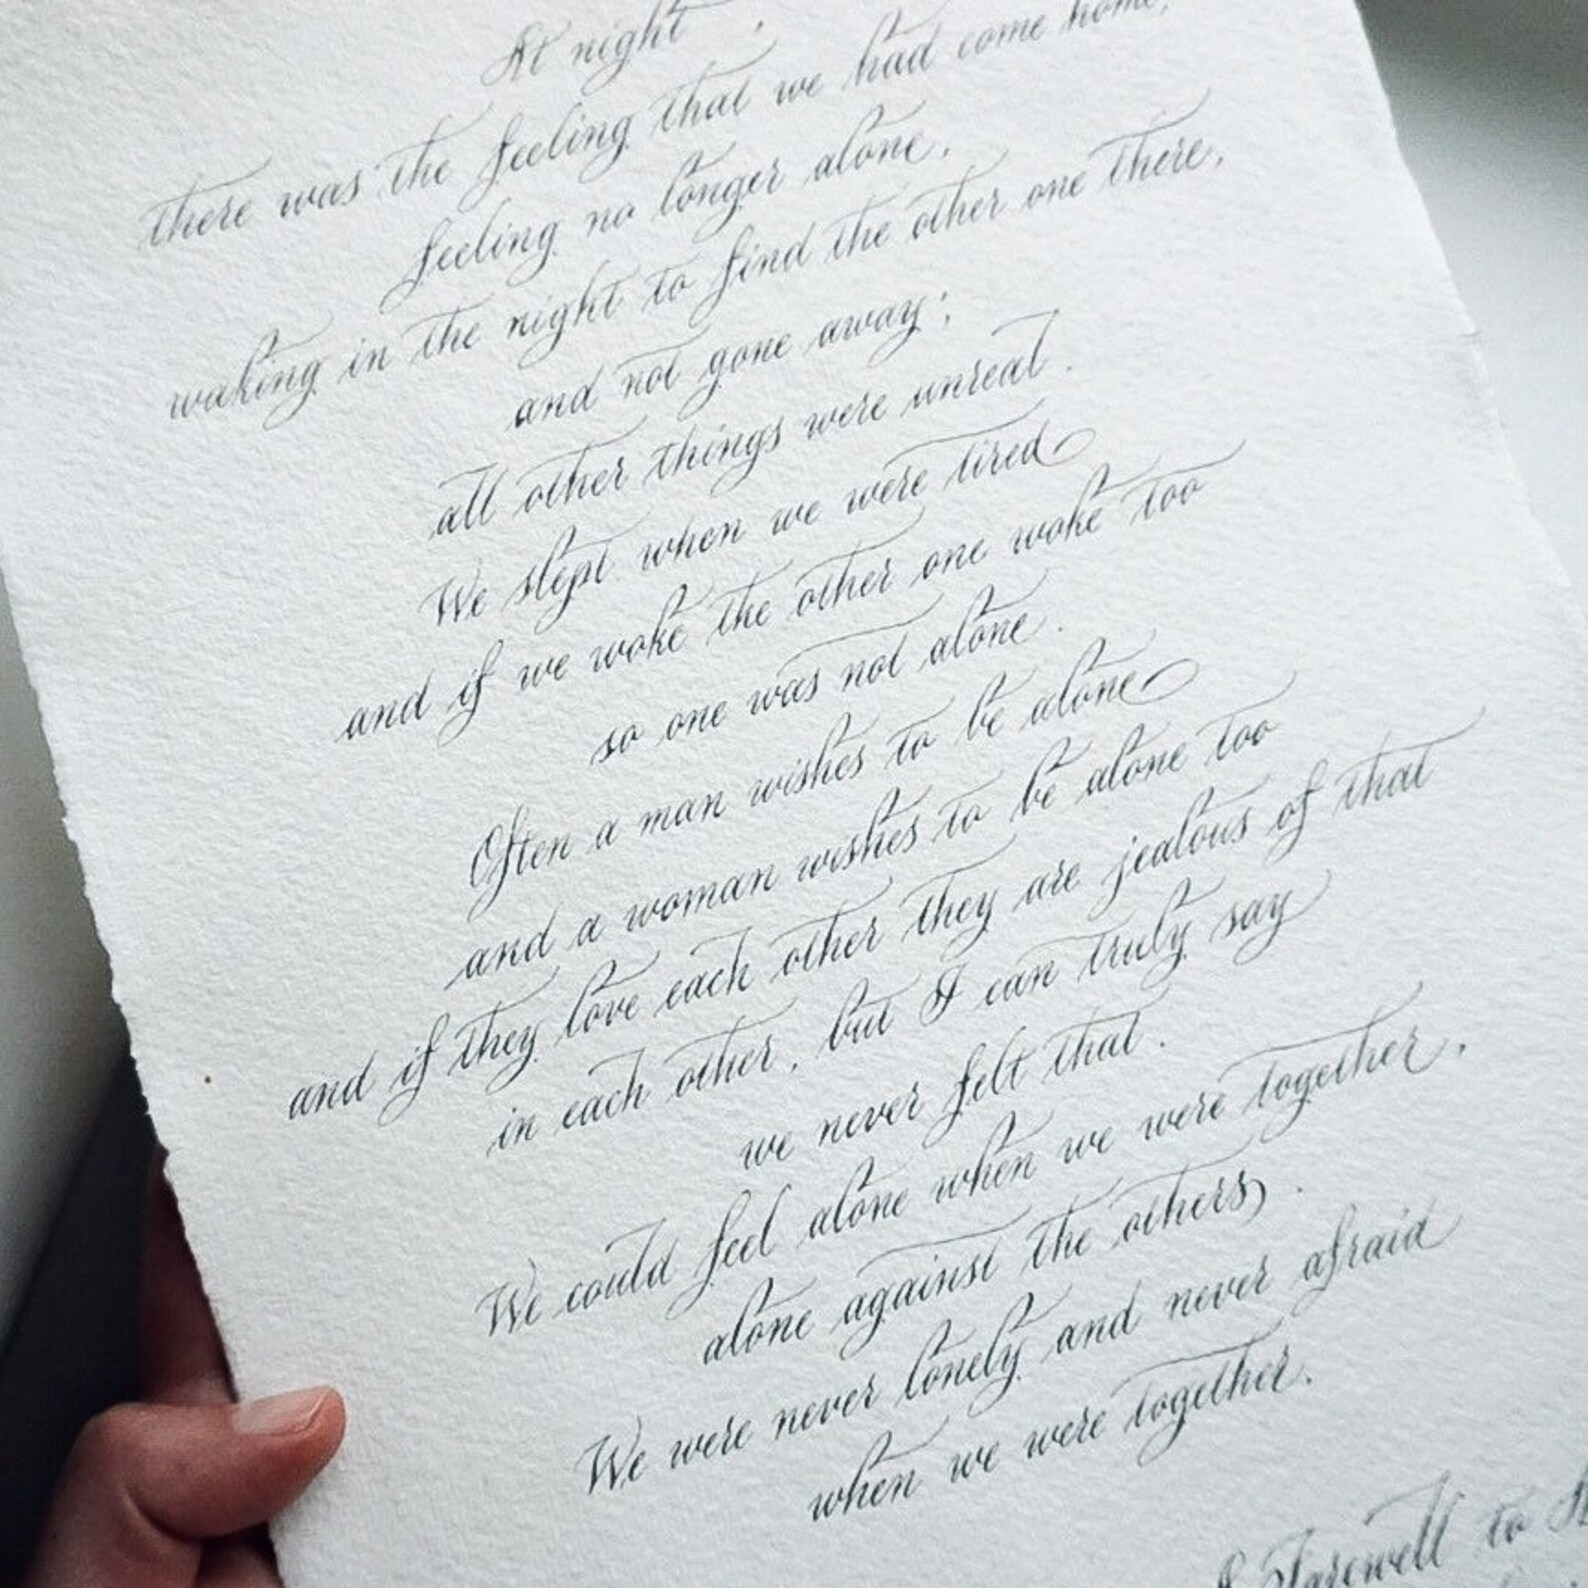 At night,
there was the feeling that we had come home,
feeling no longer alone,
waking in the night to find the other one there,
and not gone away;
all other things were unreal.
We slept when we were tired
and if we woke the other one woke too
so one was not alone.
Often a man wishes to be alone
and a woman wishes to be alone too
and if they love each other they are jealous of that
in each other, but I can truly say
we never felt that.
We could feel alone when we were together,
alone against the others.
We were never lonely and never afraid
when we were together.
Farewell to